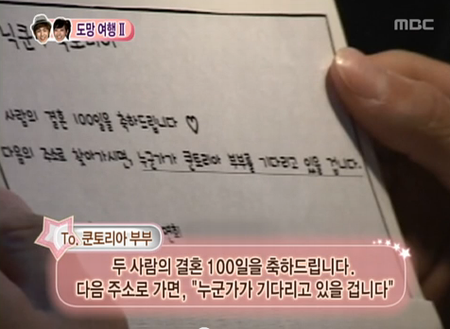 도망 여행 II
MBC
닉쿤
토리아
사람의 결혼 100일을 축하드립니다 ♡
다음의 주소로 찾아가시면, 누군가가 쿤토리아 부부를 기다리고 있을 겁니다.
To. 쿤토리아 부부
두 사람의 결혼 100일을 축하드립니다.
다음 주소로 가면, "누군가가 기다리고 있을 겁니다"